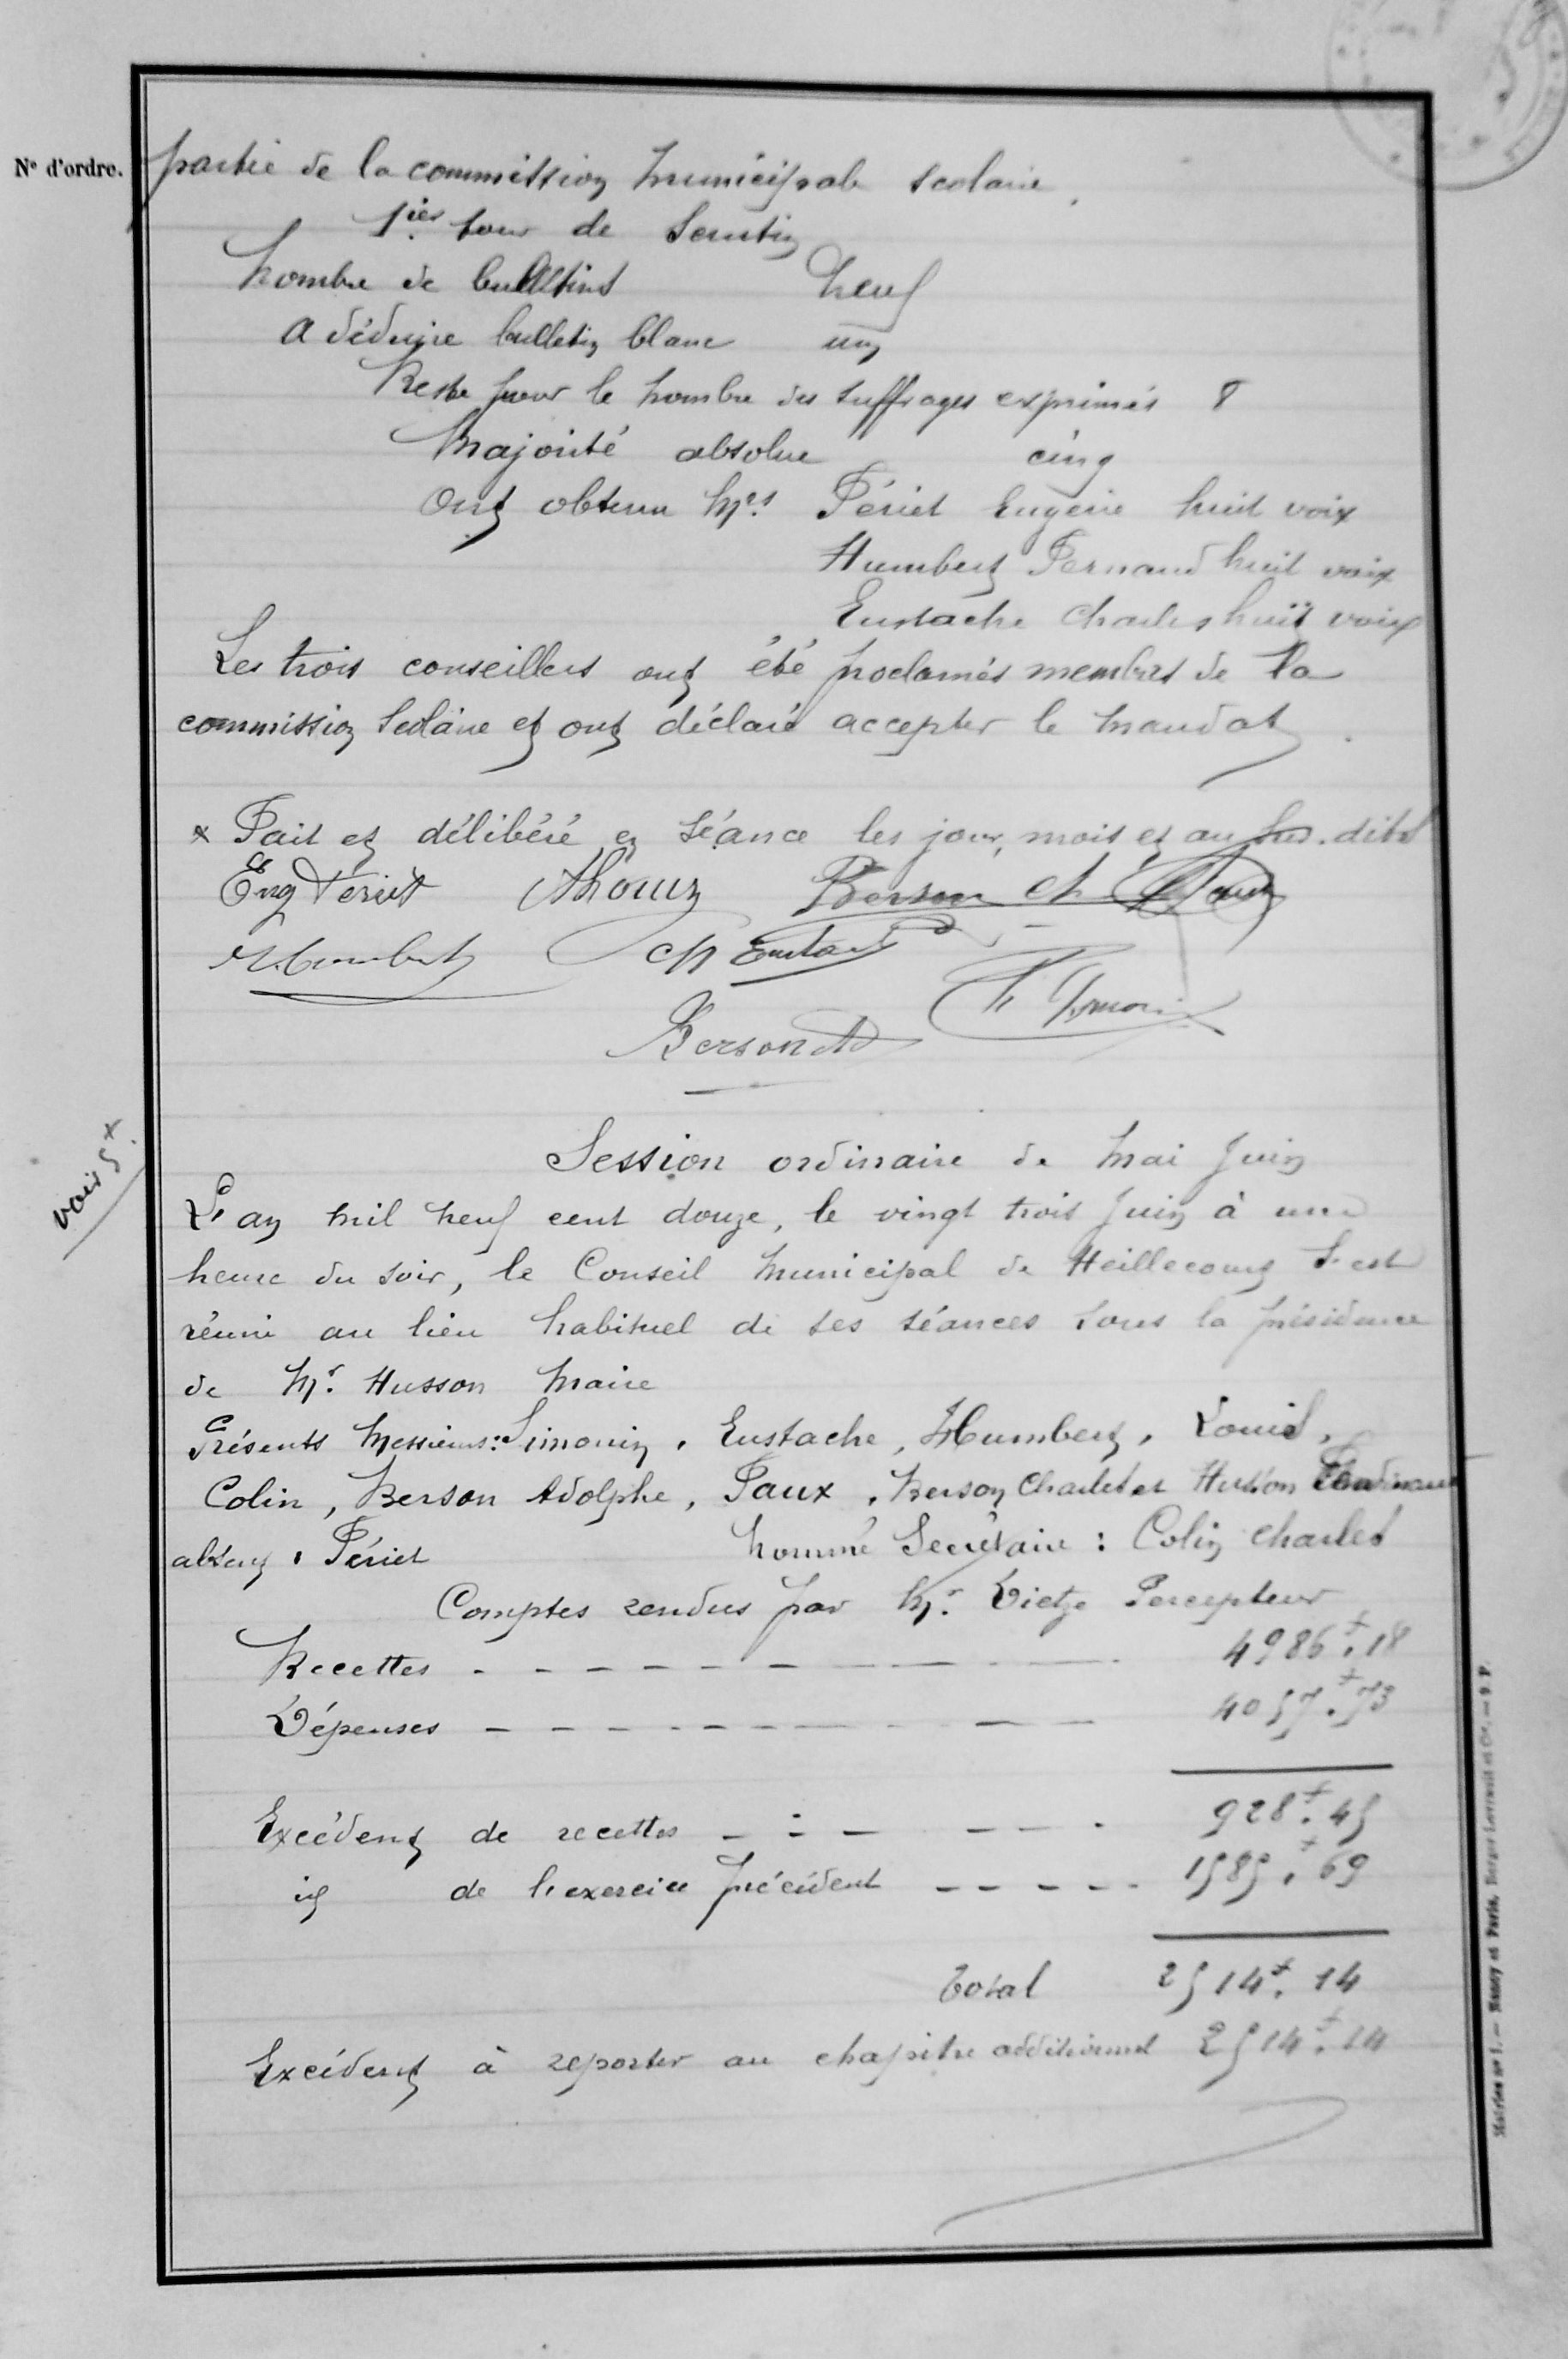 N° d'ordre.
partie de la commission municipale scolaire.
1ier tour de scrutin
Nombre de bulletins neuf
A déduire bulletin blanc un
Reste pour le nombre des suffrages exprimés 8
Majorité absolue cinq
Ont obtenu Mrs Périet Eugène huit voix
Humbert Fernand huit voix
Eustache Charles huit voix
Les trois conseillers ont été proclamés membres de la
commission scolaire et ont déclaré accepter le mandat.
x Fait et délibéré en séance les jour, mois et an sus-dits
Eug Périet Berson Ch
Humbert Ch Eustache
Berson Ad
voir 5 x
Session ordinaire de Mai Juin
L'an mil neuf cent douze, le vingt trois Juin à une
heure du soir, le Conseil Municipal de Heillecourt s'est
réuni au lieu habituel de ses séances sous la présidence
de Mr. Husson Maire
Présents Messieurs: Simonin, Eustache, Humbert, Louis,
Colin, Berson Adolphe, Faux, Berson Charles et Husson Ferdinand
absent : Périet Nommé Secrétaire : Colin Charles
Comptes rendus par Mr. Dietze Percepteur
Recettes - - - - - - - - 4986f.18
Dépenses - - - - - - - - 4057f.73
Excédent de recettes - - - - - - 928f.45
id de l'exercice précédent - - - - - 1585f.69
Total 2514f.14
Excédent à reporter au chapitre additionnel 2514f.14
Mairies n° 1. — Nancy et Paris, Berger-Levrault et Cie.